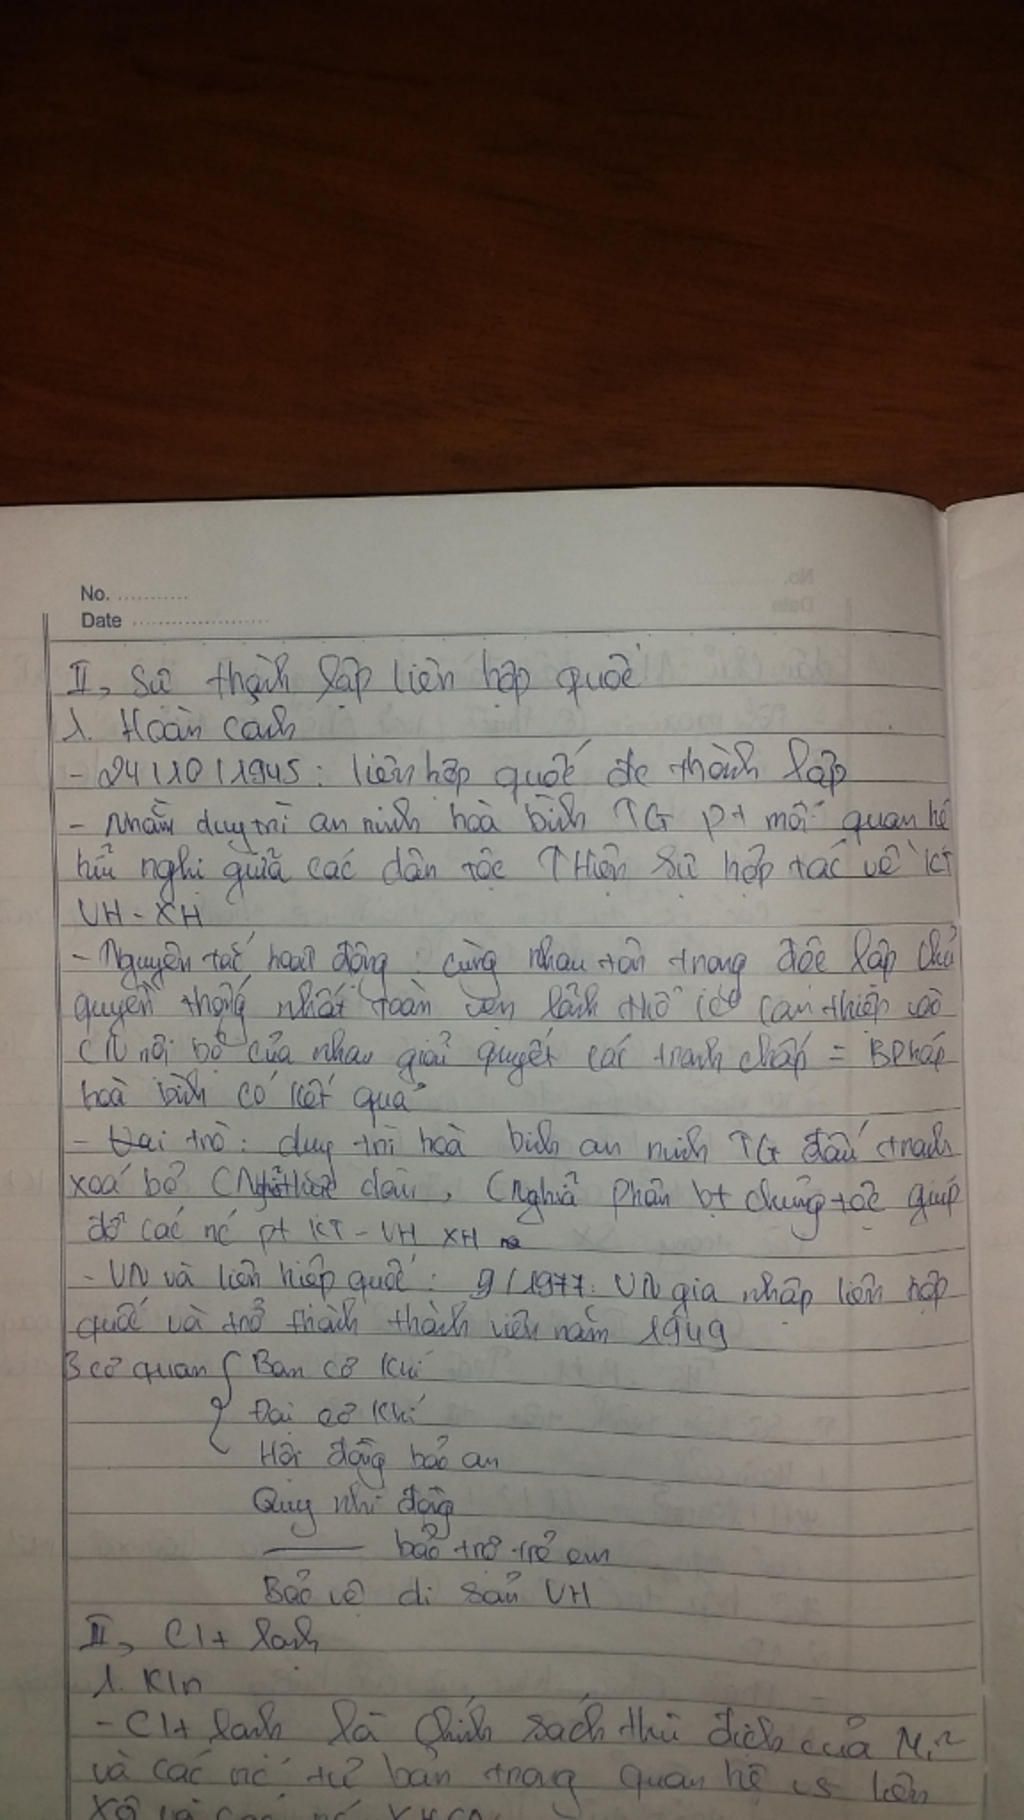 No. ............
Date .......................
II, Sự thành lập liên hợp quốc
1. Hoàn cảnh
- 24/10/1945: liên hợp quốc đc thành lập
- Nhằm duy trì an ninh hoà bình TG pt mối quan hệ
hữu nghị giữa các dân tộc THiện sự hợp tác về KT
VH - XH
- Nguyên tắc hoạt động: cùng nhau tôn trong độc lập chủ
quyền thống nhất toàn vẹn lãnh thổ can thiệp vào
CV nội bộ của nhau giải quyết các tranh chấp = BPháp
hoà bình có kết quả
- Vai trò: duy trì hoà bình an ninh TG đấu tranh
xoá bỏ CNghĩa dân, CNghĩa Phân bt chủng tộc giúp
đỡ các nc pt KT - VH XH
- VN và liên hiệp quốc: 9/1977: VN gia nhập liên hợp
quốc và trở thành thành viên năm 1949
3 cơ quan { Ban cơ khí
Đại cơ khí
Hội đồng bảo an
Quỹ nhi đồng
—— bảo trợ trẻ em
Bảo vệ di sản VH
II, C/t lạnh
1. K/n
- C/t lạnh là chính sách thù địch của Mĩ
và các nc tư bản trong quan hệ vs liên
Xô và các nc XHCN